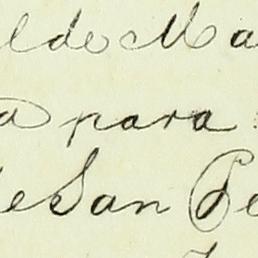 lde Ma
a para
de San Pe